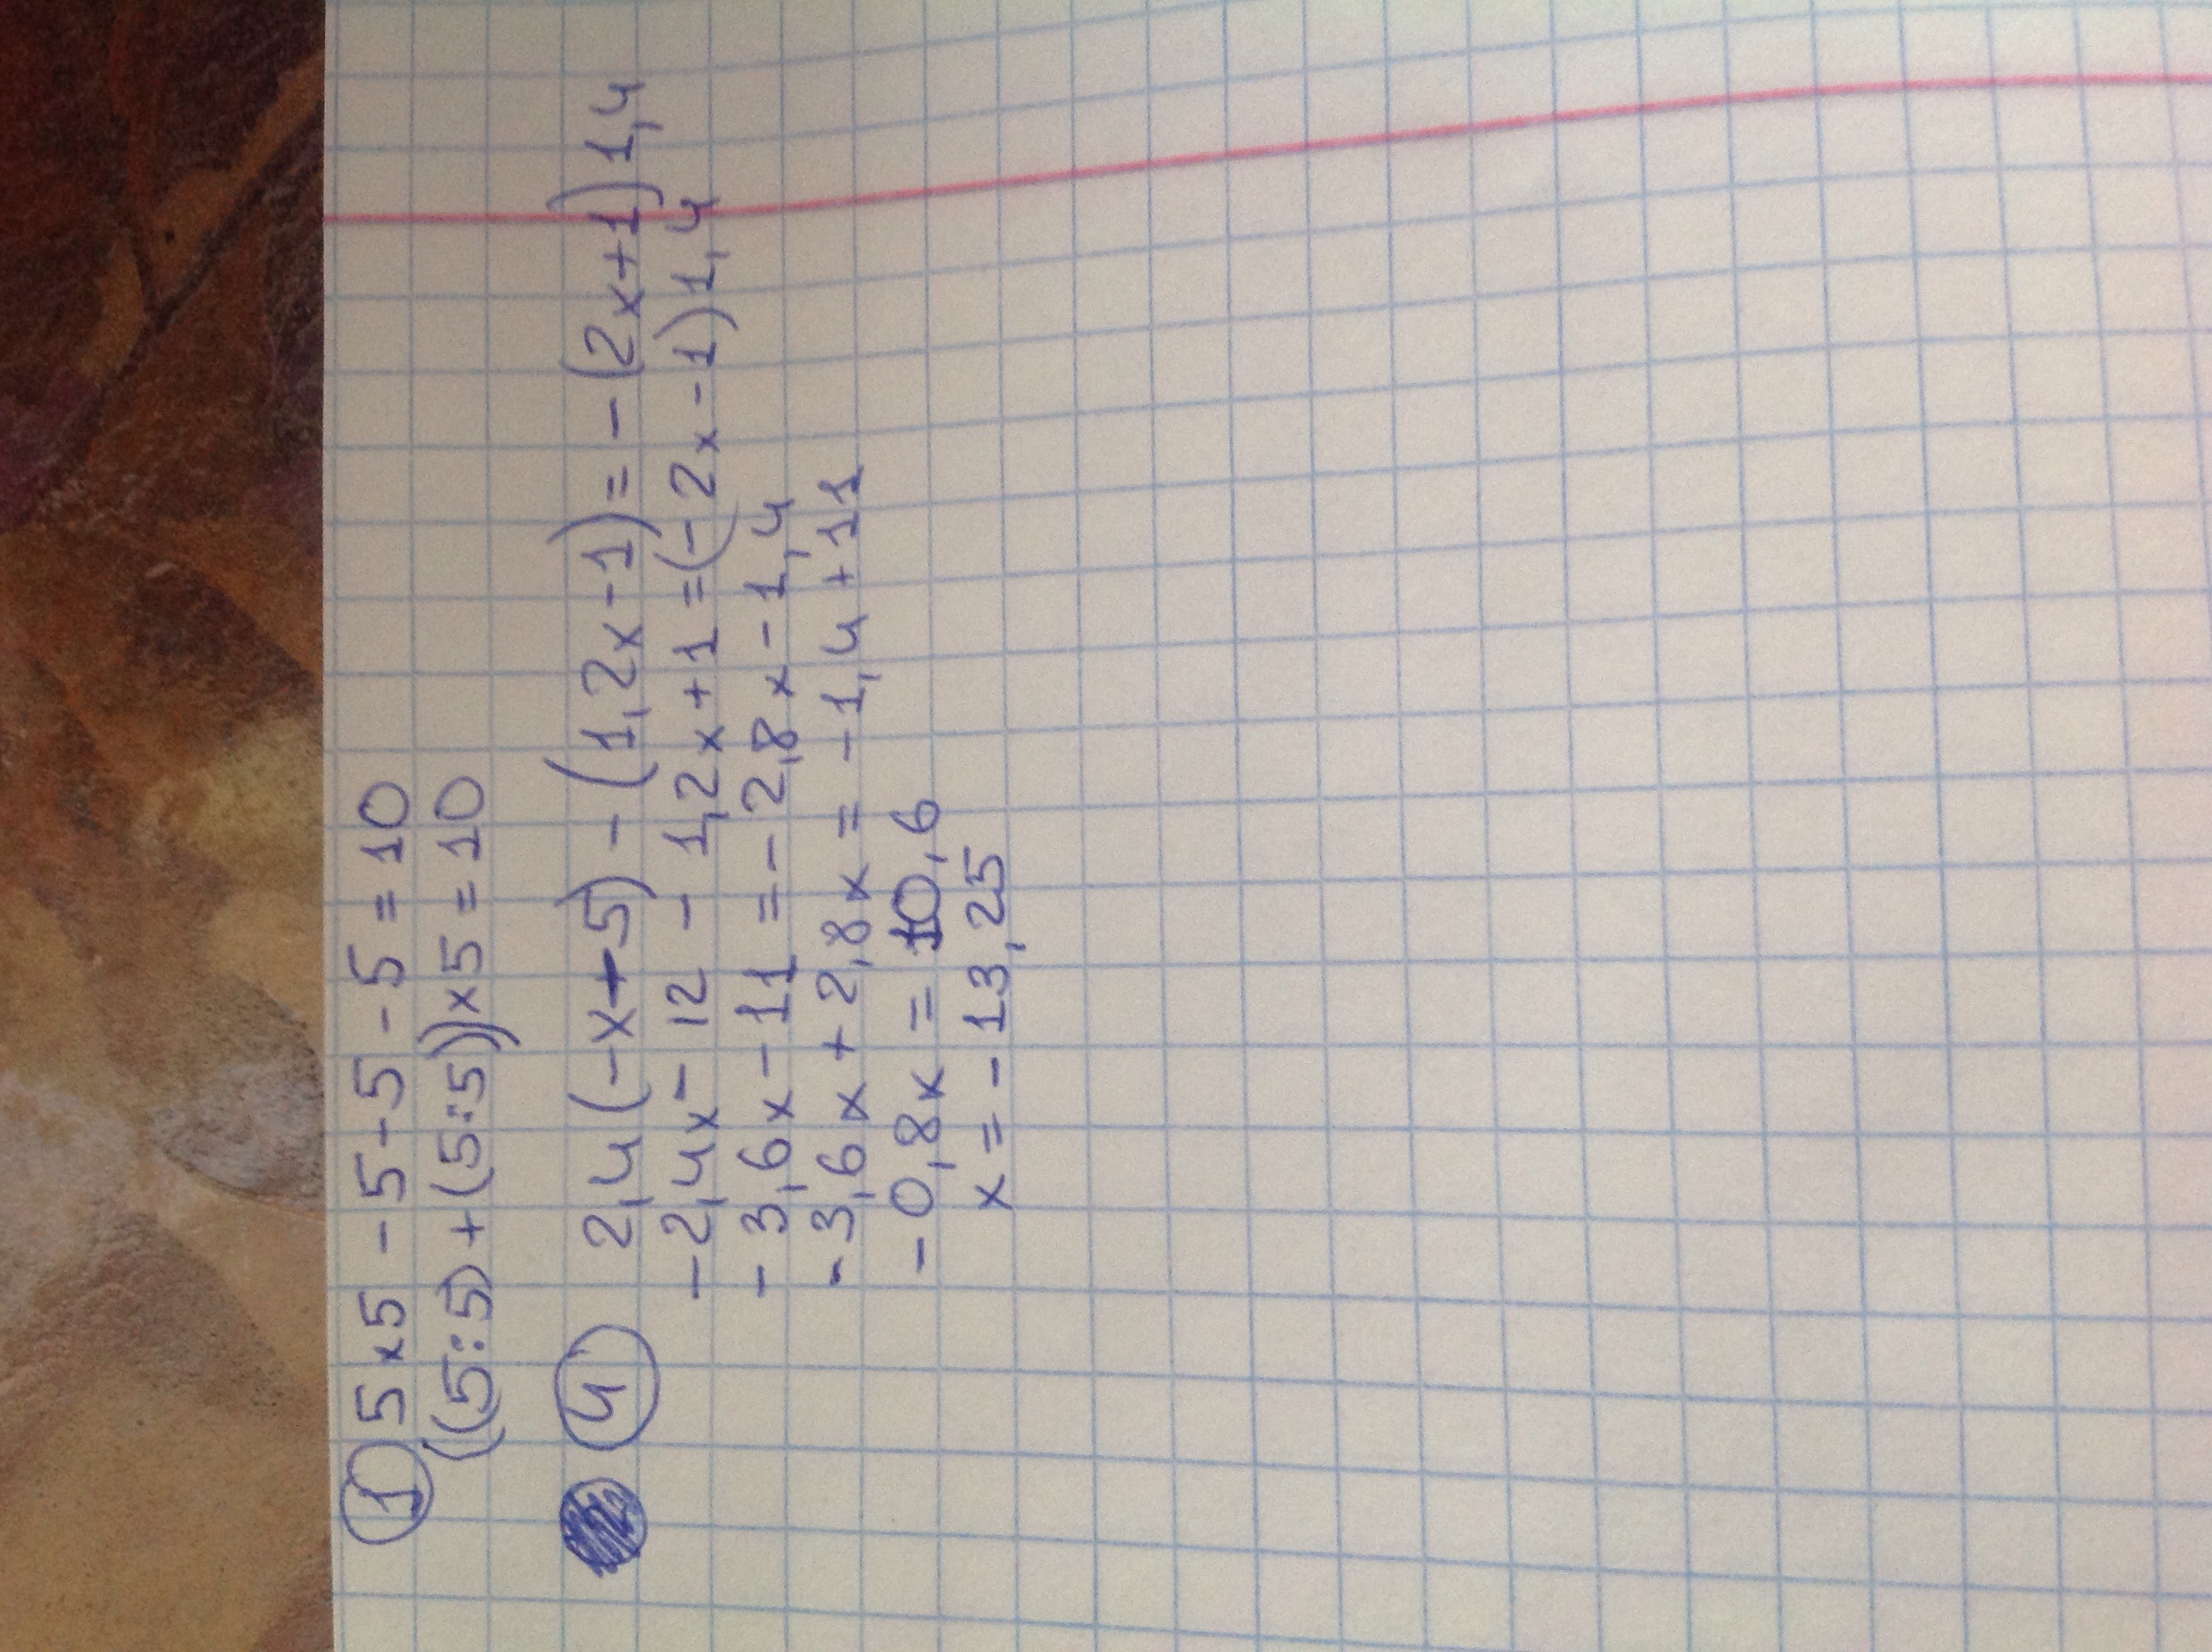 1 5×5-5-5-5=10
((5:5)+(5:5))×5=10
4 2,4(-x+5)-(1,2x-1)=-(2x+1)1,4
-2,4x-12-1,2x+1=(-2x-1)1,4
-3,6x-11=-2,8x-1,4
-3,6x+2,8x=-1,4+11
-0,8x=10,6
x=-13,25